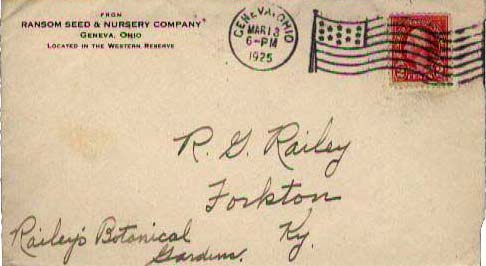 FROM
RANSOM SEED & NURSERY COMPANY
GENEVA, OHIO
LOCATED IN THE WESTERN RESERVE
GENEVA, OHIO
MAR 13
6-PM
1925
R. G. Railey
Forkton
Ky.
Railey's Botanical
Gardens.